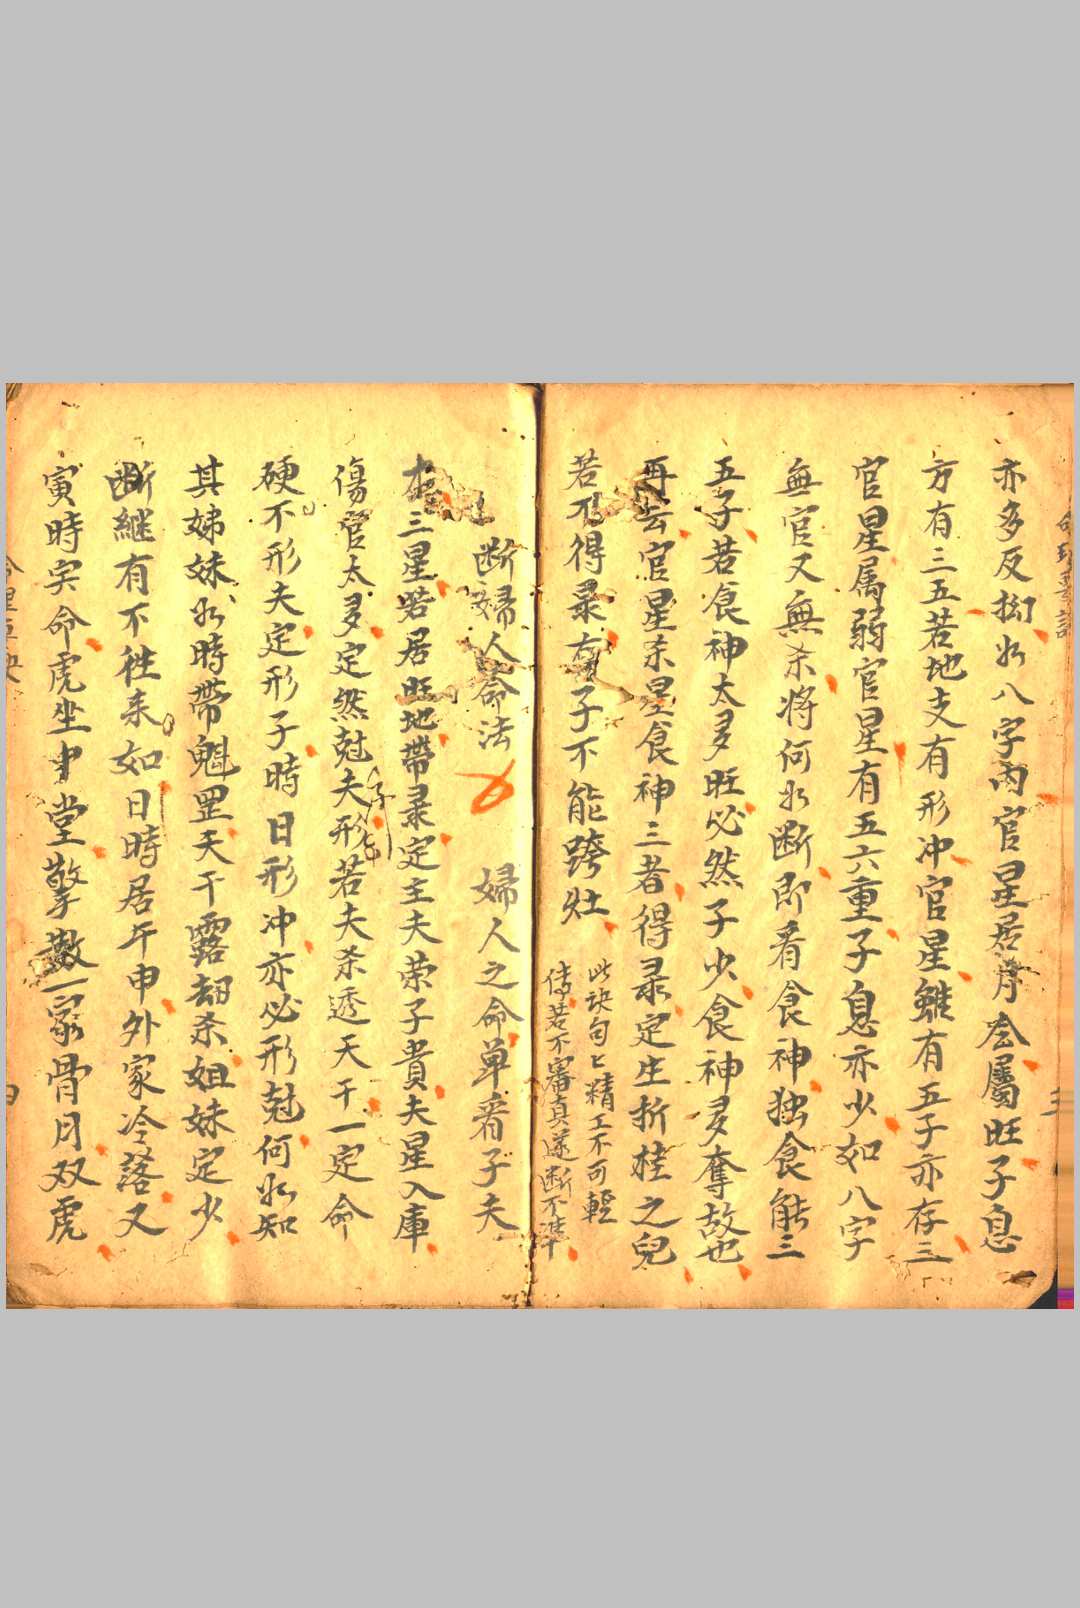 亦多反拗如八字內官星居月令屬旺子息
方有三五若地支有形冲官星雖有五子亦存三
官星属弱官星有五六重子息亦少如八字
無官又無杀將何如断即看食神独食能三
五子若食神太多旺必然子少食神多奪故也
再云官星杀星食神三者得彔定生折桂之兒
若不得彔有子不能跨灶
此诀句匕精工不可輕
传若不審真遂断不準
断婦人命法
婦人之命单看子夫
三星若居旺地帶彔定主夫荣子貴夫星入庫
傷官太多定然尅夫形若夫杀透天干一定命
子
硬不形夫定形子時日形冲亦必形尅何如知
其姊妹如時帶魁罡天干露刼杀姐妹定少
断継有不徃来如日時居午申外家冷落又
寅時实命虎坐中堂擎數一家骨月双虎